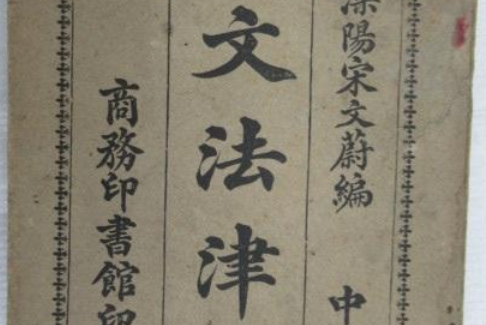 溧陽宋文蔚編
中
文法津
商務印書館印